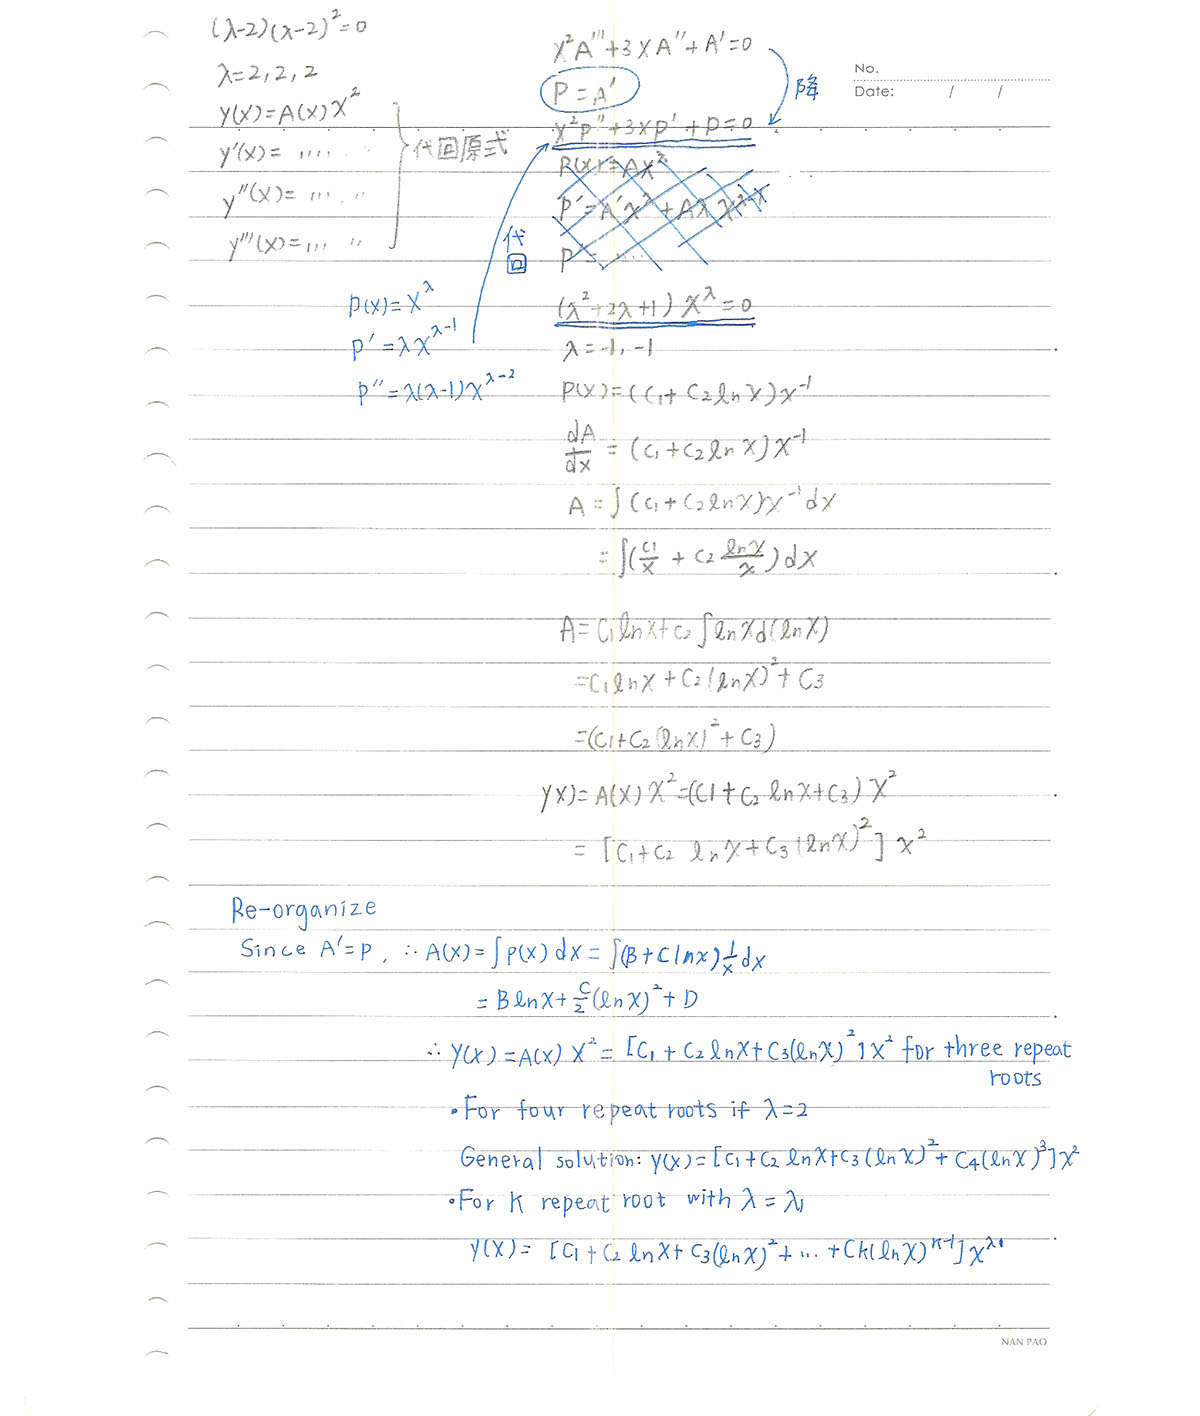 (λ-2)(λ-2)²=0
λ=2,2,2
y(x)=A(x)x²
y'(x)= ......
y''(x)= ......
y'''(x)=......
代回原式
x²A'''+3xA''+A'=0
P=A'
降
No.
Date: / /
x²p''+3xp'+p=0
P(x)=Ax^λ
P'=A'x^λ+Aλ
P''= ....
代回
P(x)=x^λ
P'=λx^(λ-1)
P''=λ(λ-1)x^(λ-2)
(λ²+2λ+1)x^λ=0
λ=-1,-1
P(x)=(C₁+C₂lnx)x⁻¹
dA/dx=(C₁+C₂lnx)x⁻¹
A=∫(C₁+C₂lnx)x⁻¹dx
=∫(C₁/x+C₂ lnx/x)dx
A=C₁lnx+C₂∫lnxd(lnx)
=C₁lnx+C₂(lnx)²+C₃
=(C₁+C₂(lnx)²+C₃)
yx)=A(x)x²=(C1+C₂lnx+C₃)x²
=[C₁+C₂ lnx+C₃(lnx)²]x²
Re-organize
Since A'=P, ∴A(x)=∫p(x)dx=∫(B+Clnx)1/x dx
=Blnx+C/2(lnx)²+D
∴y(x)=A(x)x²=[C₁+C₂lnx+C₃(lnx)²]x² for three repeat
roots
•For four repeat roots if λ=2
General solution: y(x)=[C₁+C₂lnx+C₃(lnx)²+C₄(lnx)³]x²
•For K repeat root with λ=λ₁
y(x)= [C₁+C₂lnx+C₃(lnx)²+...+Ck(lnx)^(k-1)]x^λ₁
NAN PAO